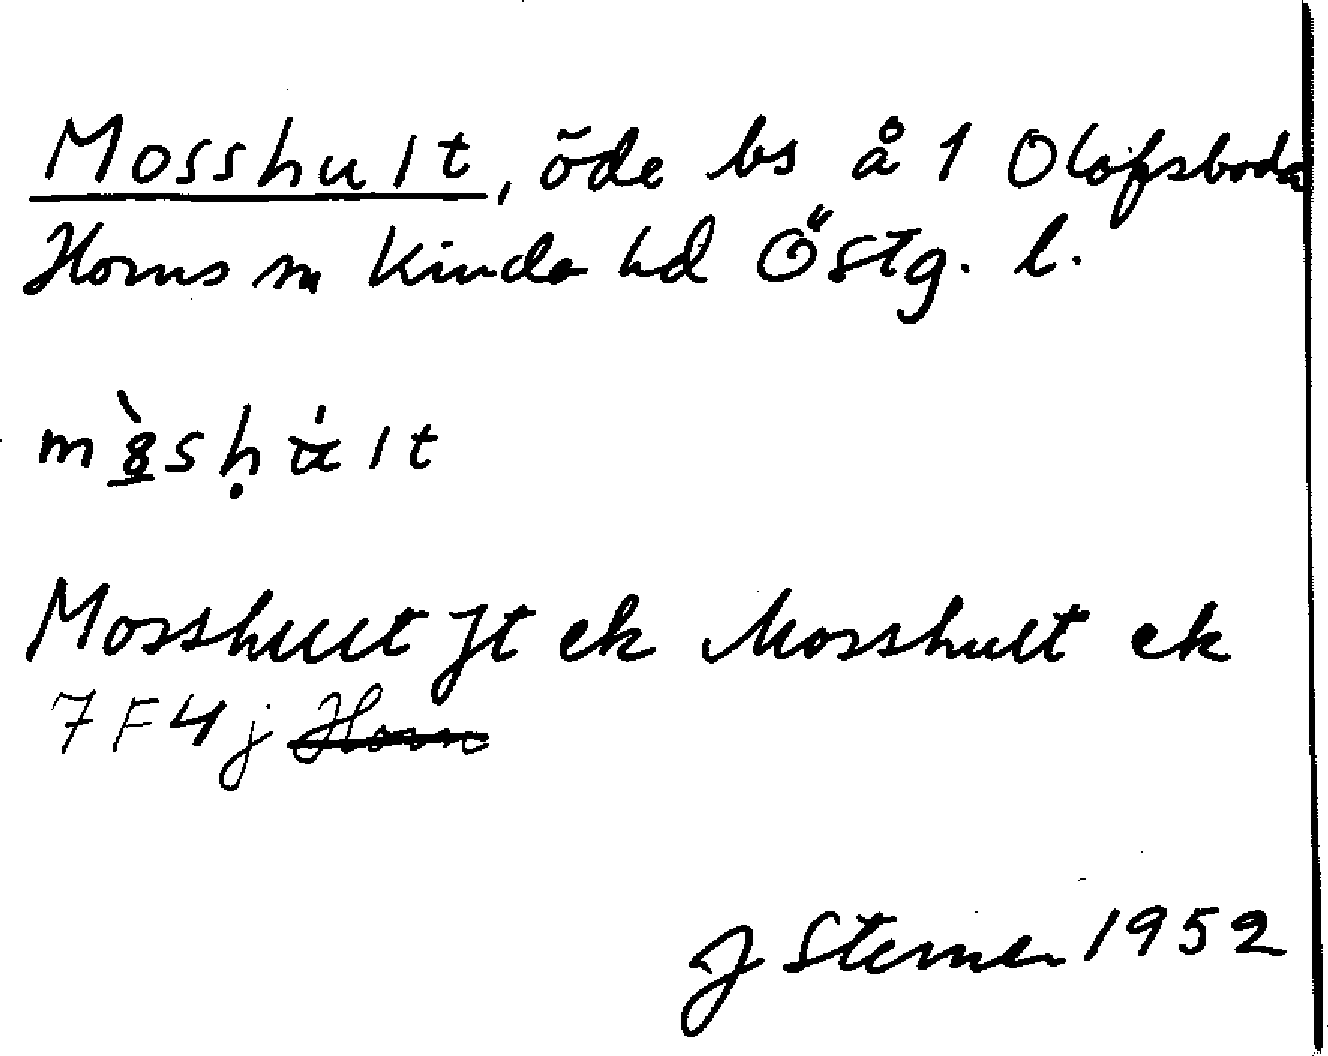 Mosshult, öde bs å 1 Olofsboda
Horns sn Kinda hd Östg. l.
Mosshult Jt ek Mosshult ek
7F4j Horn
J Sterner 1952